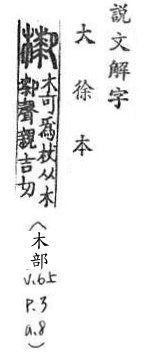 說文解字
大徐本
木可爲杖从木
厀聲親吉切
(木部
V.6上
P.3
a.8)